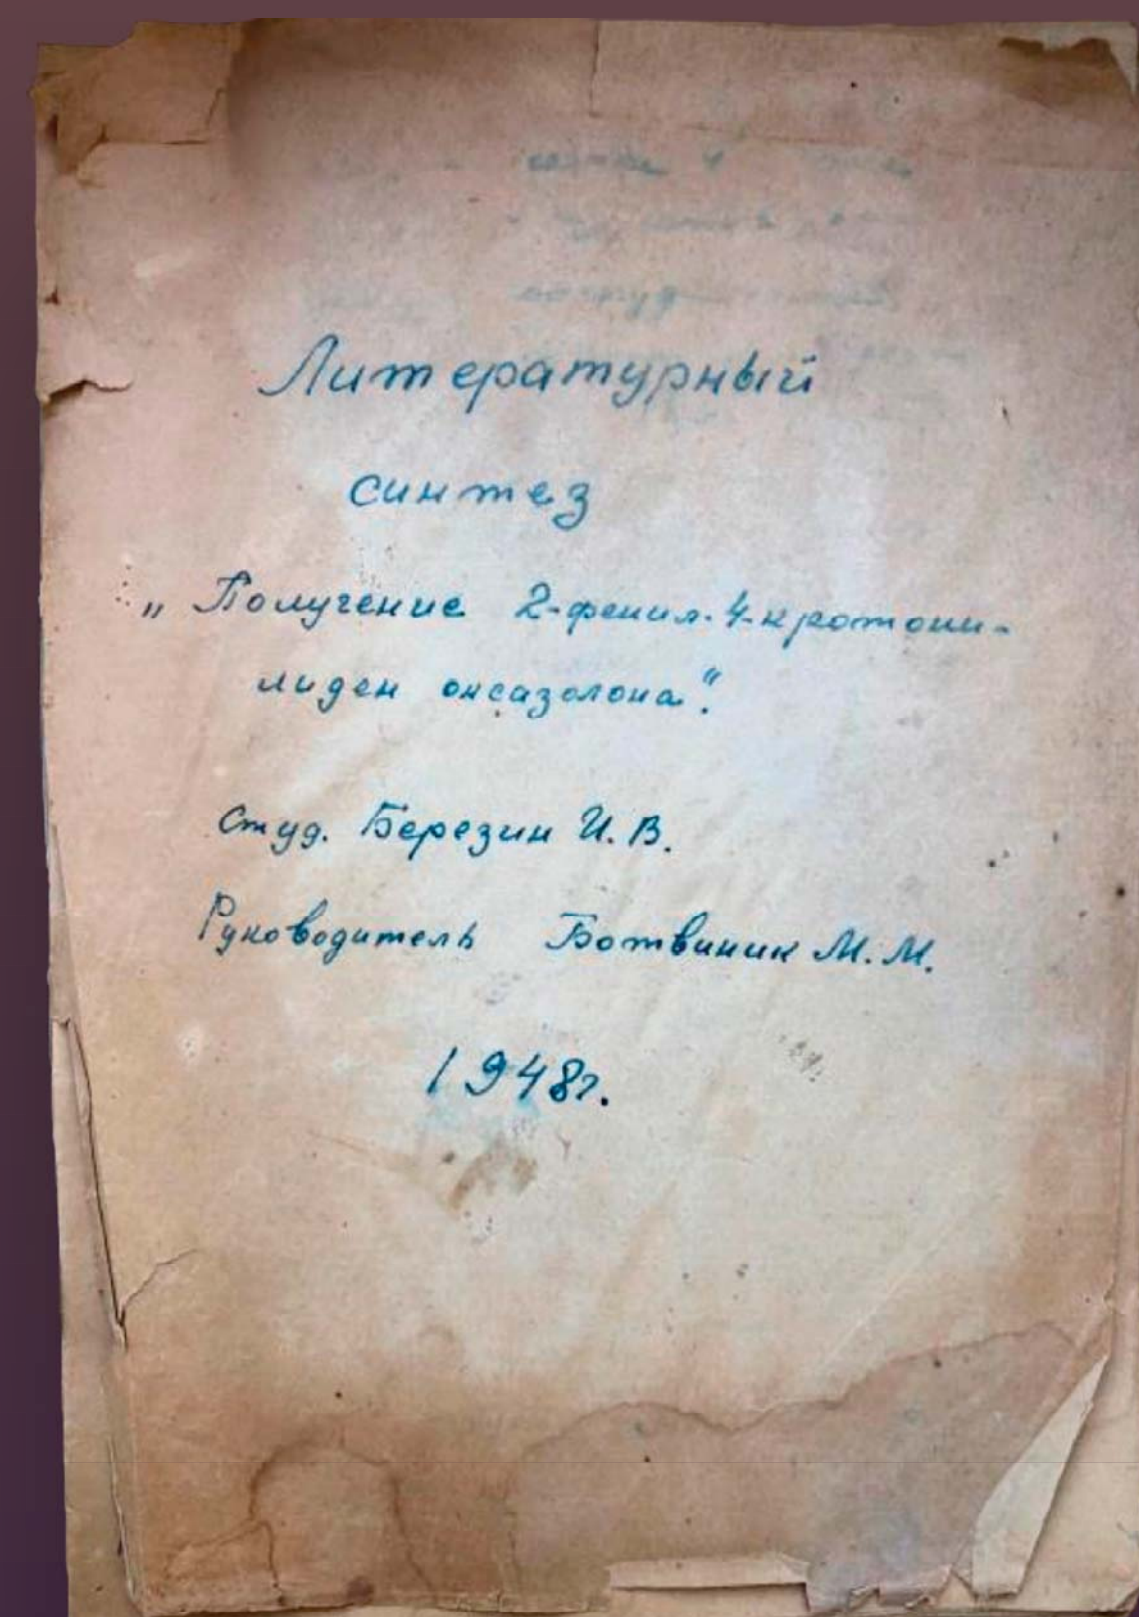 Литературный
синтез
„Получение 2-фенил-4-кротони-
лиден оксазолона".
Студ. Березин И.В.
Руководитель Ботвиник М.М.
1948г.